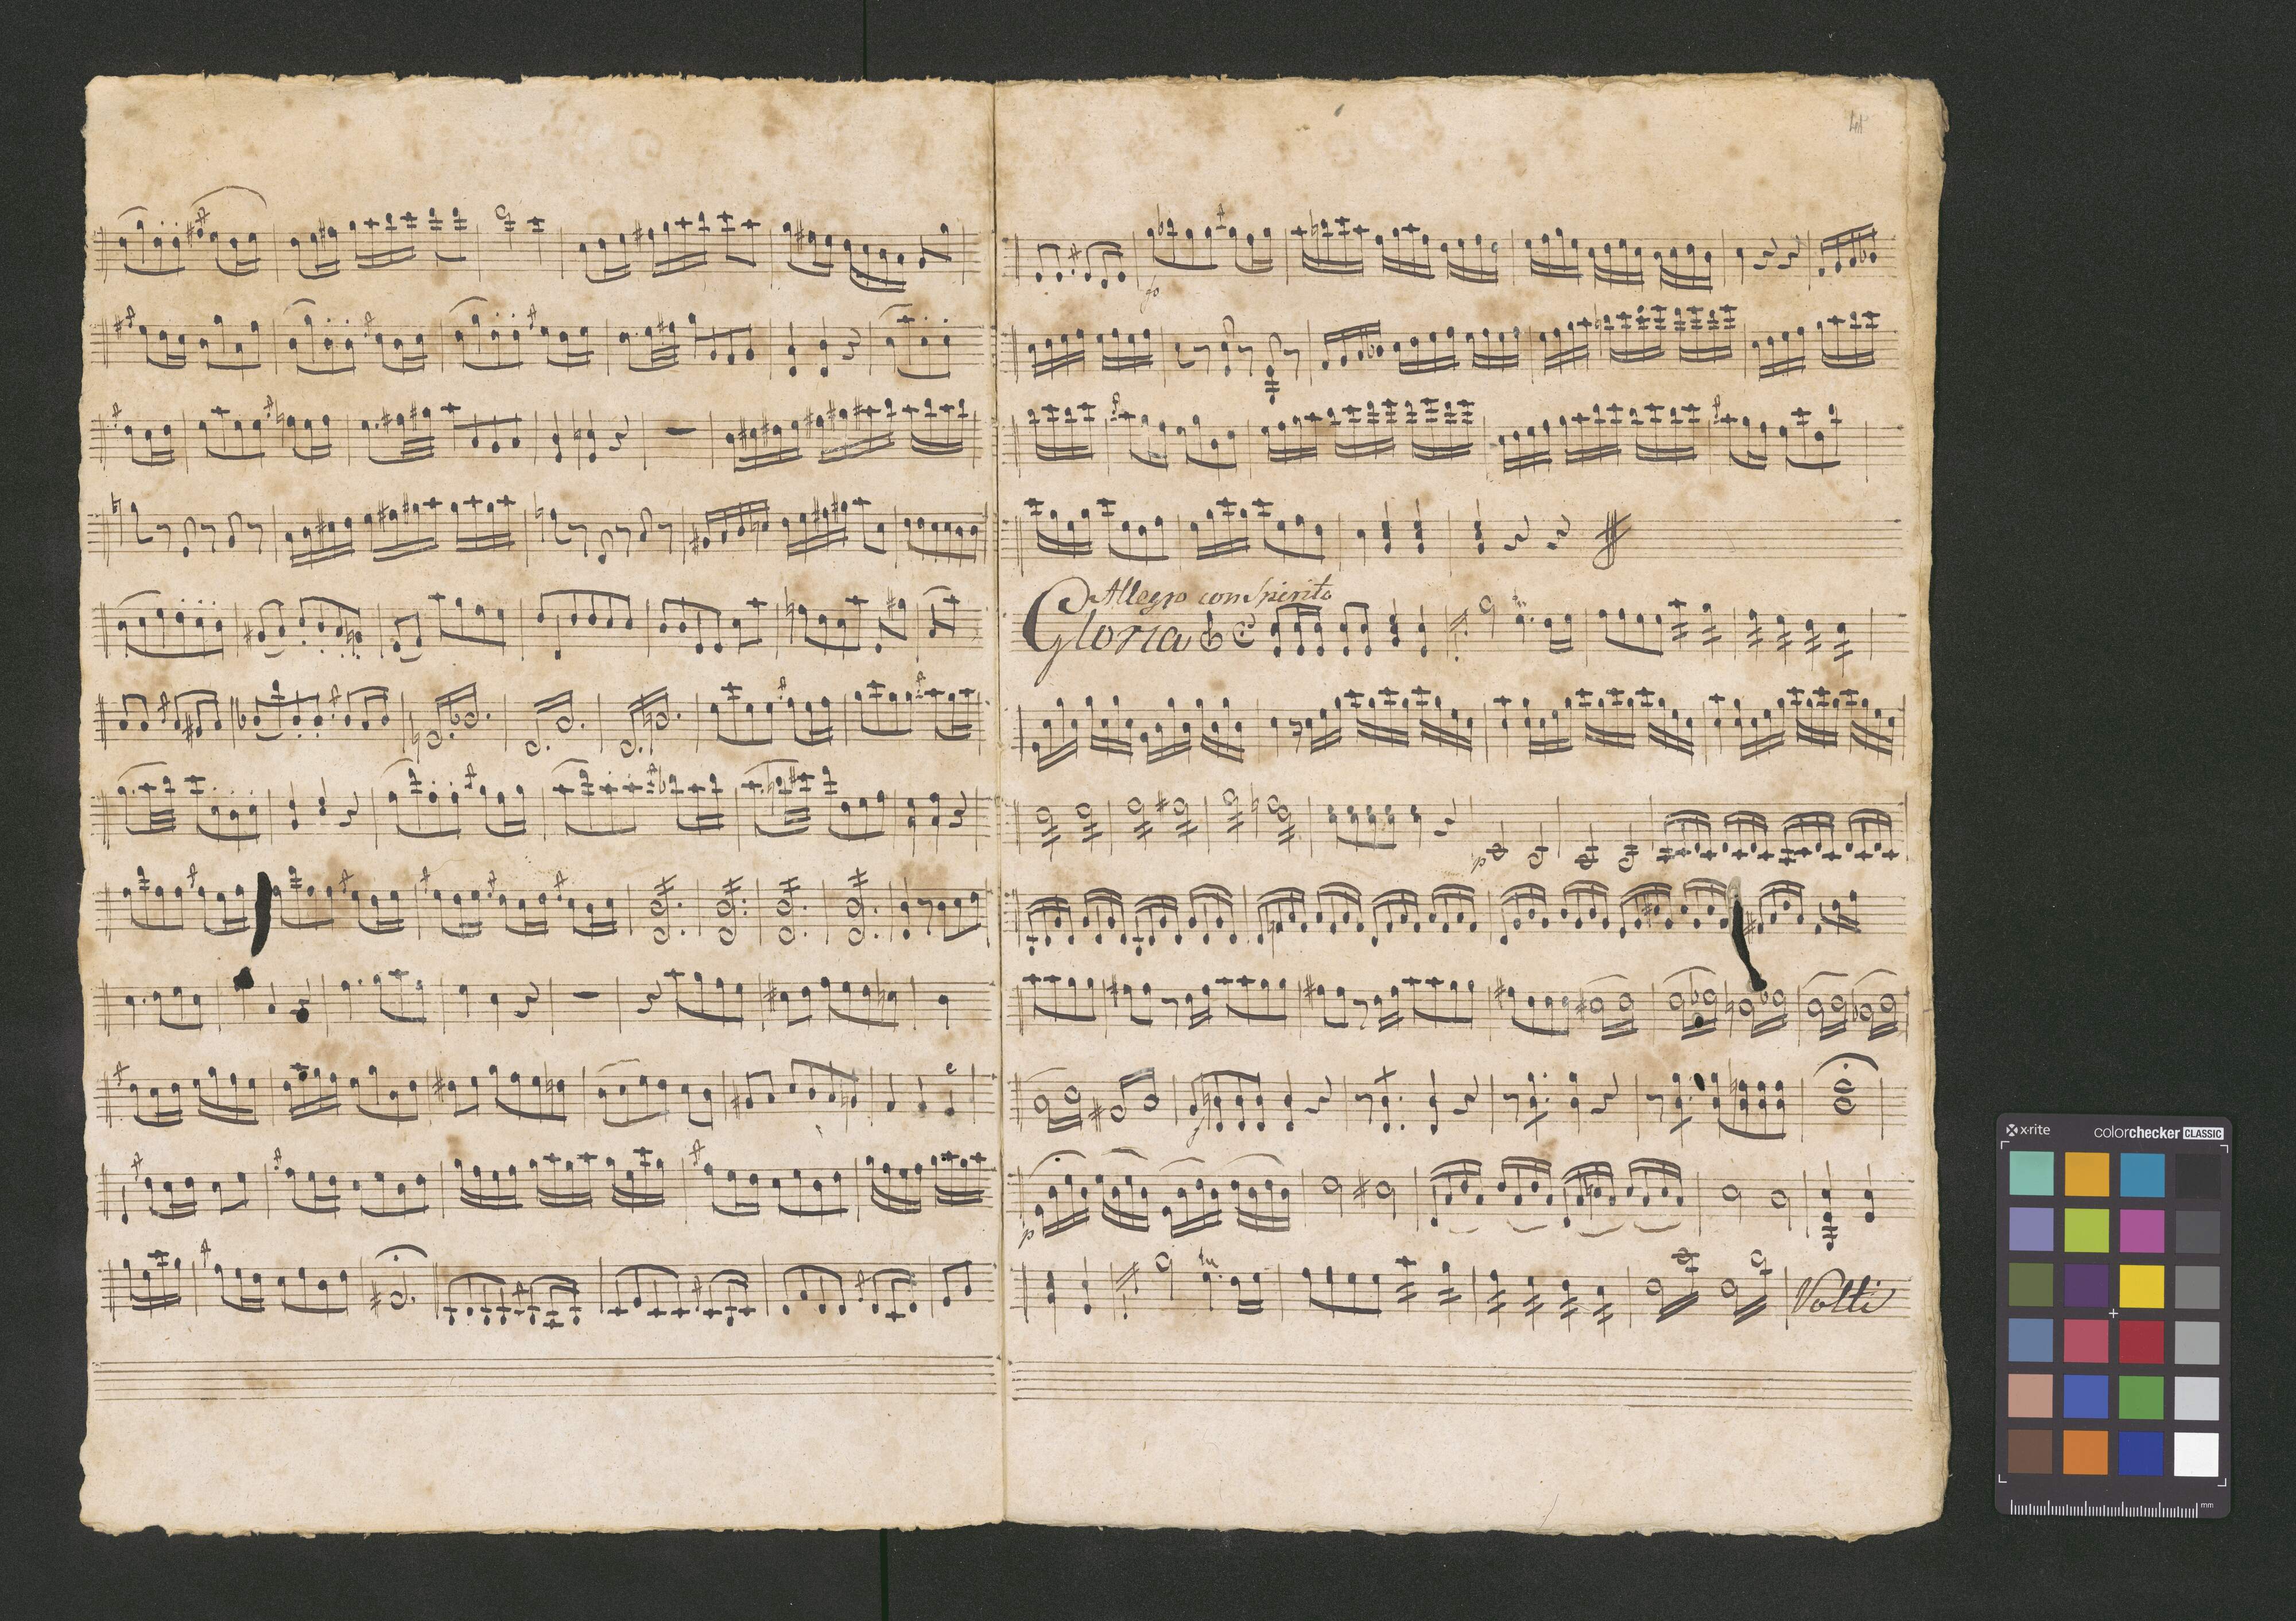 fo
Allegro con Spirito
Gloria
tr
p
f
p
tr
Volti
x-rite
colorchecker CLASSIC
mm